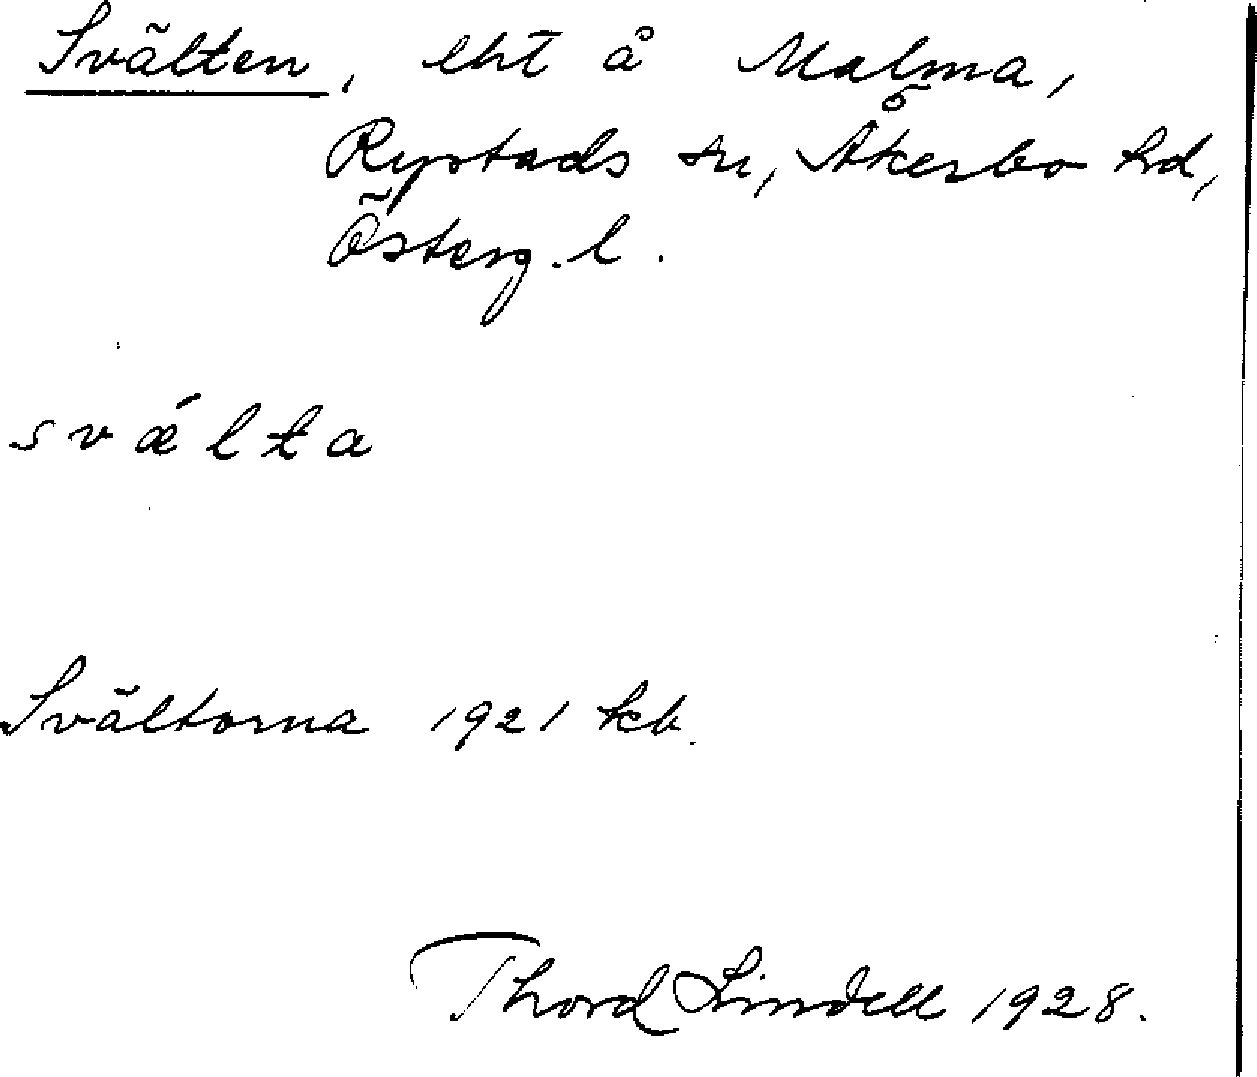 Svälten, lht å Malma,
Rystads sn, Åkerbo hd,
Österg. l.
svǽlta
Svältorna 1921 kb.
Thord Lindell 1928.